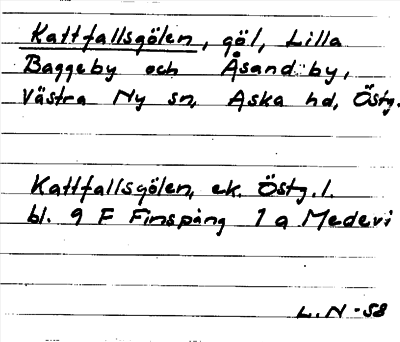 Kattfallsgölen, göl, Lilla
Baggeby och Åsand by,
Västra Ny sn, Aska hd, Östg.
Kattfallsgölen, ek. Östg. l.
bl. 9 F Finspång 1 a Medevi
L. N - 58